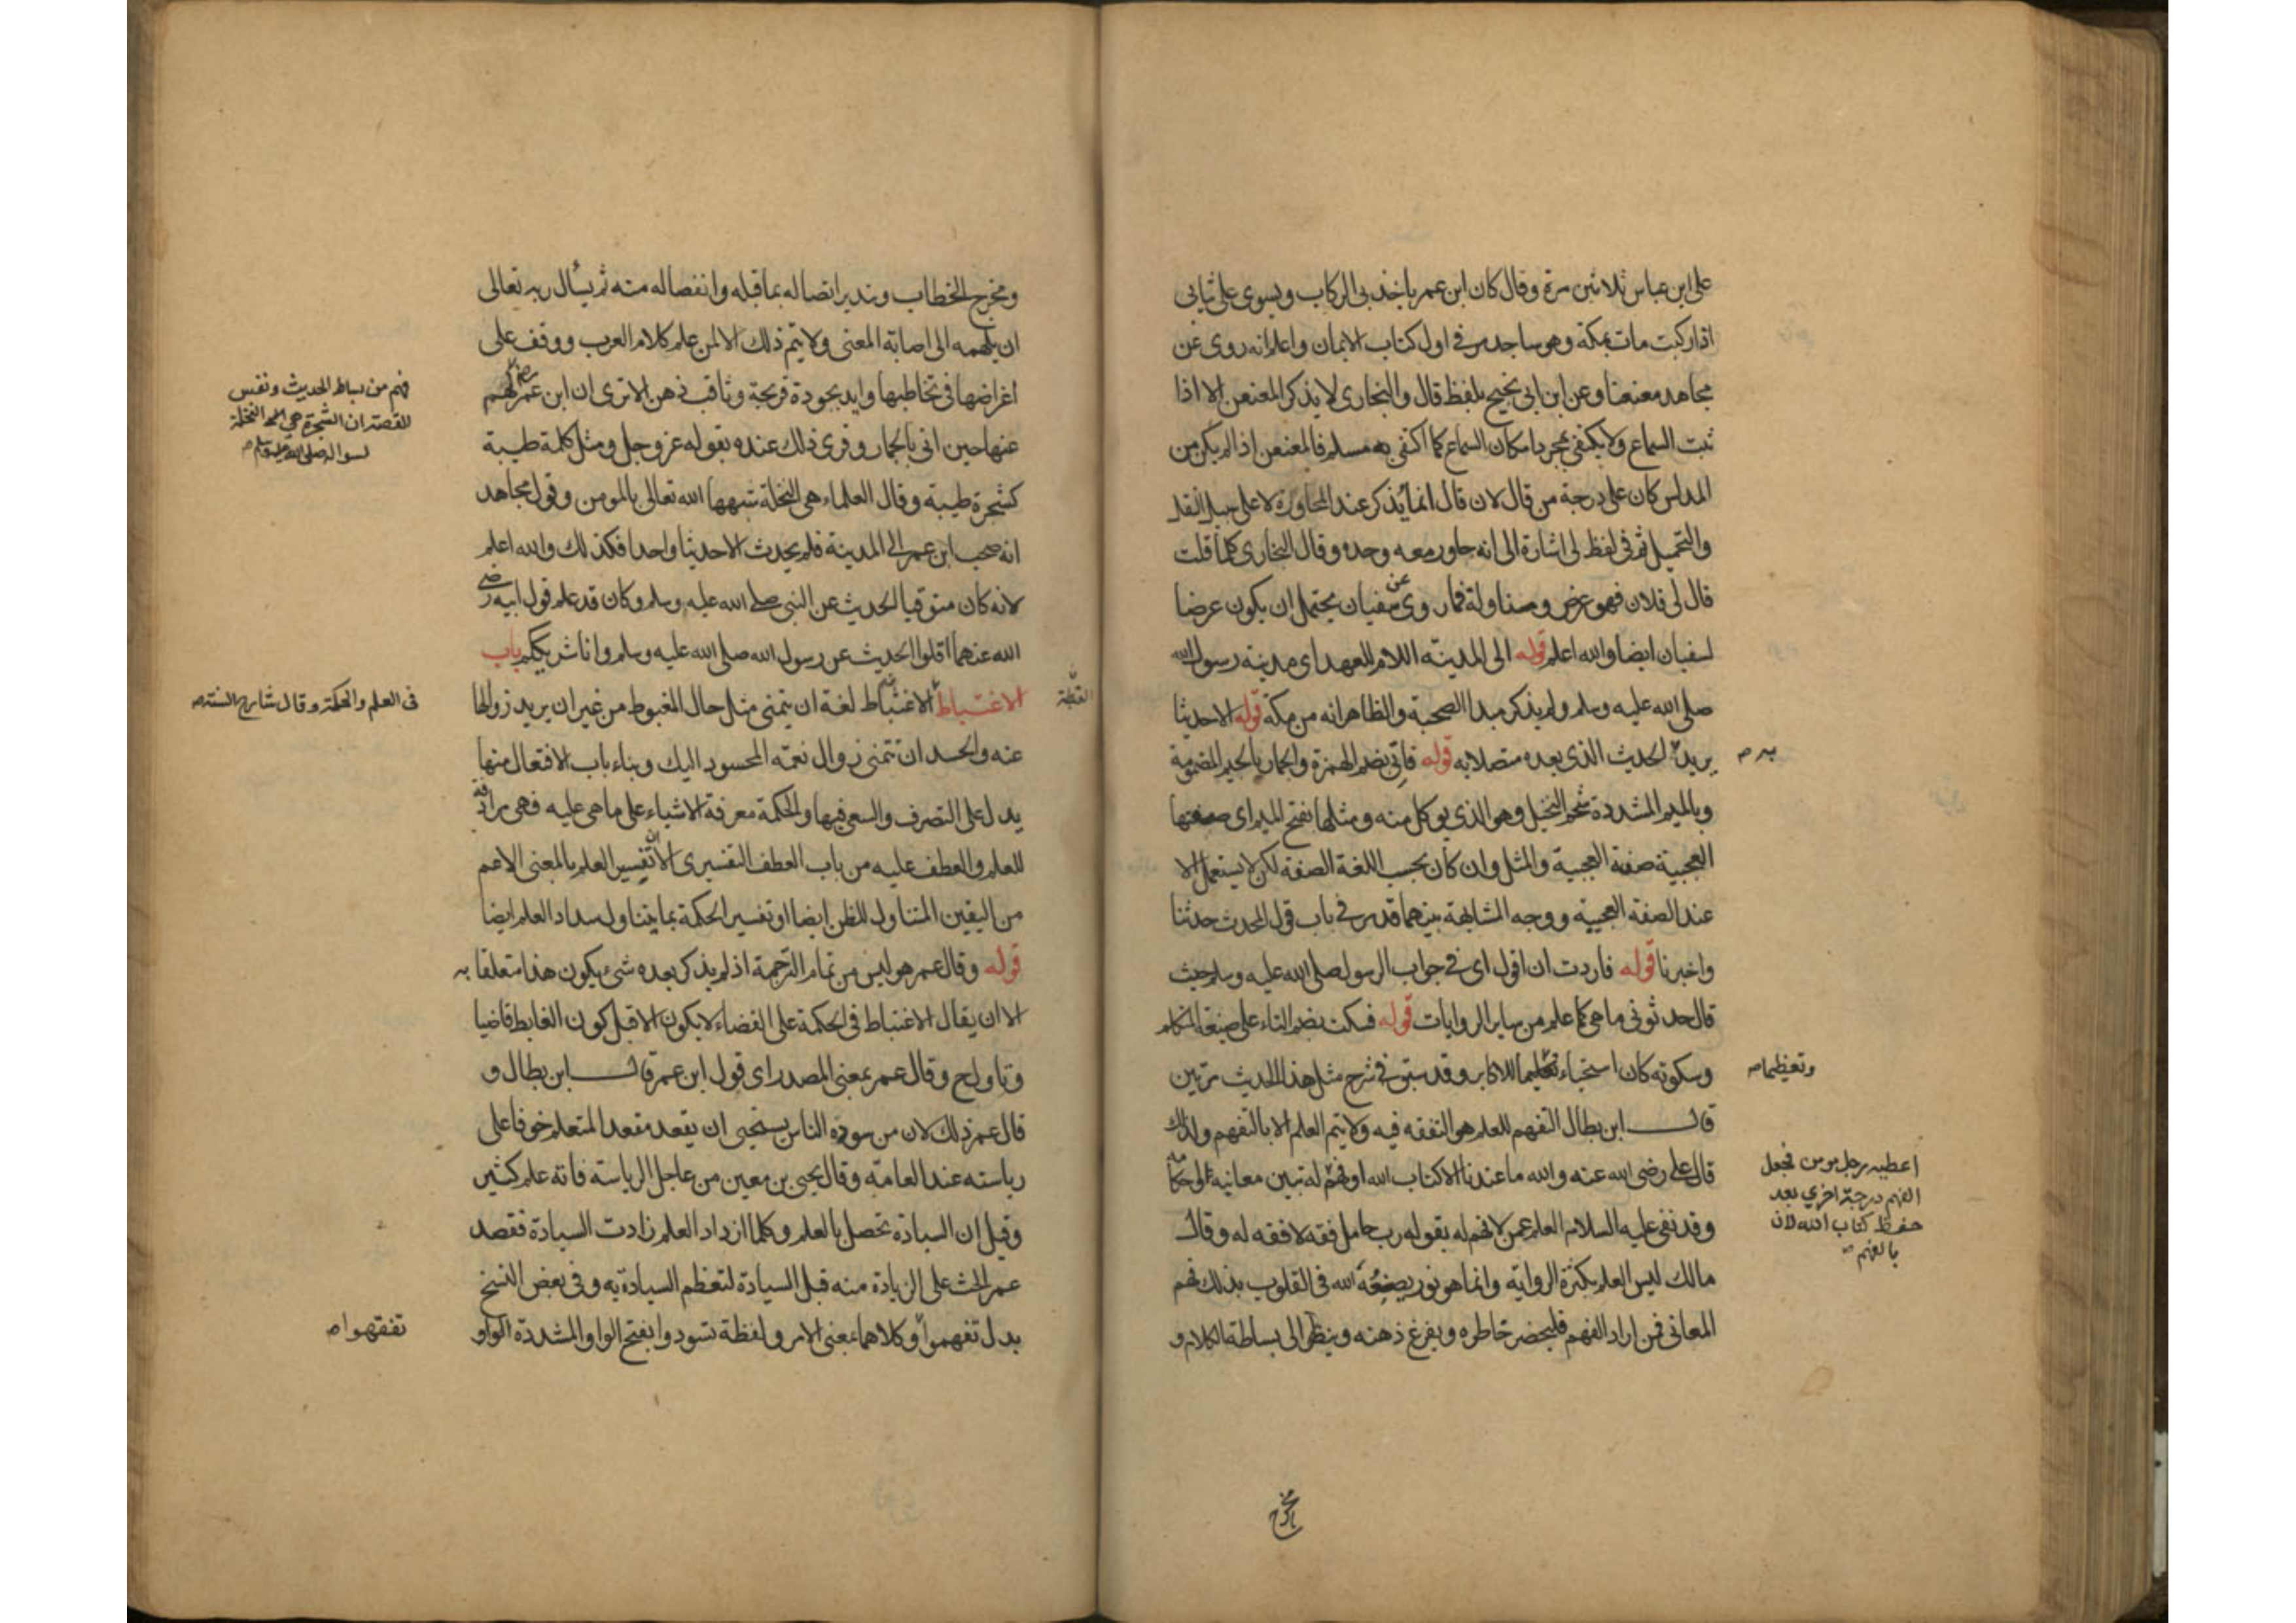 على ابن عباس ثلاثين مرة وقال كان ابن عمر ياخذ بى الركاب ويسوى على ثيابى
اذا ركبت مات بمكة وهو ساجد مر فى اول كتاب الايمان واعلم انه روى عن
مجاهد معنعنا وعن ابن ابى نجيح بلفظ قال والبخارى لا يذكر المعنعن الا اذا
ثبت السماع ولا يكتفى بمجرد امكان السماع كما اكتفى به مسلم فالمعنعن اذا لم يكن من
المدلس كان على درجة من قال لان قال انما يذكر عند المحاورة لا على سبيل النقل
والتحميل ثم فى لفظ لى اشارة الى انه حاور معه وحده وقال البخارى كلما قلت
قال لى فلان فهو عرض ومناولة فما روى عن سفيان يحتمل ان يكون عرضا
لسفيان ايضا والله اعلم قوله الى المدينة اللام للعهد اى مدينة رسول الله
صلى الله عليه وسلم ولم يذكر مبدا الصحبة والظاهر انه من مكة قوله الا حديثا
يريد الحديث الذى بعده متصلا به قوله فاتى بضم الهمزة والجمار بالجيم المضمومة
به
وبالميم المشددة شحم النخيل وهو الذى يوكل منه ومثلها بفتح الميم اى صفتها
العجيبة صفة العجيبة والمثل وان كان بحسب اللغة الصفة لكن لا يستعمل الا
عند الصفة العجيبة ووجه المشابهة بينهما قد مر فى باب قول المحدث حدثنا
واخبرنا قوله فاردت ان اقول اى فى جواب الرسول صلى الله عليه وسلم حيث
قال حدثونى ما هى كما علم من ساير الروايات قوله فسكت بضم التاء على صيغة المتكلم
وسكوته كان استحياء تعليما للاكابر وقد سبق فى شرح مثل هذا الحديث مرتين
وتعظيما
قال ابن بطال التفهم للعلم هو التفقه فيه ولا يتم العلم الا بالتفهم ولذلك
قال على رضى الله عنه والله ما عندنا الا كتاب الله او فهم له تبين معانيه
اعطيه رجل مومن فجعل
الفهم درجة اخرى بعد
حفظ كتاب الله لان
بالفهم
وقد نفى عليه السلام العلم عمن لا فهم له بقوله رب حامل فقه لا فقه له وقال
مالك ليس العلم بكثرة الرواية وانما هو نور يضعه الله فى القلوب بذلك فهم
المعانى فمن اراد الفهم فليحضر خاطره ويفرغ ذهنه وينظر الى بساطة الكلام و
مخرج
ومخرج الخطاب وتدبر اتصاله بما قبله وانفصاله منه ثم يسأل ربه تعالى
ان يلهمه الى اصابة المعنى ولا يتم ذلك الا لمن علم كلام العرب ووقف على
اغراضها فى تخاطبها وايد بجودة قريحة وثاقب ذهن الا ترى ان ابن عمر
فهم من بساط الحديث ونفس
القصة ان الشجرة هى النخلة
لسواله صلى الله عليه وسلم
عنها حين اتى بالجمار وقوى ذلك عنده بقوله عز وجل ومثل كلمة طيبة
كشجرة طيبة وقال العلماء هى النخلة شبهها الله تعالى بالمومن وقول مجاهد
انه صحب ابن عمر الى المدينة فلم يحدث الا حديثا واحدا فكذلك والله اعلم
لانه كان متوقيا لحديث عن النبى صلى الله عليه وسلم وكان قد علم قول ابيه رضى
الله عنهما اقلوا الحديث عن رسول الله صلى الله عليه وسلم وانا شريككم باب
الاغتباط الاغتباط لغة ان يتمنى مثل حال المغبوط من غير ان يريد زوالها
فى العلم والحكمة وقال شارح السنة
عنه والحسد ان تتمنى زوال نعمة المحسود اليك وبناء باب الافتعال منها
يدل على التصرف والسعى فيها والحكمة معرفة الاشياء على ما هى عليه فهى مرادفه
للعلم والعطف عليه من باب العطف التفسيرى الا ان تفسير العلم بالمعنى الاعم
من اليقين المتناول للظن ايضا او تفسير الحكمة بما يتناول سداد العلم ايضا
قوله وقال عمر هو ليس من تمام الترجمة اذ لم يذكر بعده شىء يكون هذا متعلقا به
الا ان يقال الاغتباط فى الحكمة على القضاء لا يكون الا قبل كون الغابط قاضيا
وتاول ح وقال عمر بمعنى المصدر اى قول ابن عمر قال ابن بطال و
قال عمر ذلك لان من سوده الناس يستحيى ان يقعد مقعد المتعلم خوفا على
رياسته عند العامة وقال يحيى بن معين من عاجل الرياسة فاته علم كثير
وقيل ان السيادة تحصل بالعلم وكلما ازداد العلم زادت السيادة فقصد
عمر الحث على الزيادة منه قبل السيادة لتعظم السيادة به وفى بعض النسخ
بدل تفهموا وكلاهما بمعنى الامر ولفظة تسودوا بفتح الواو المشددة الواو
تفقهوا